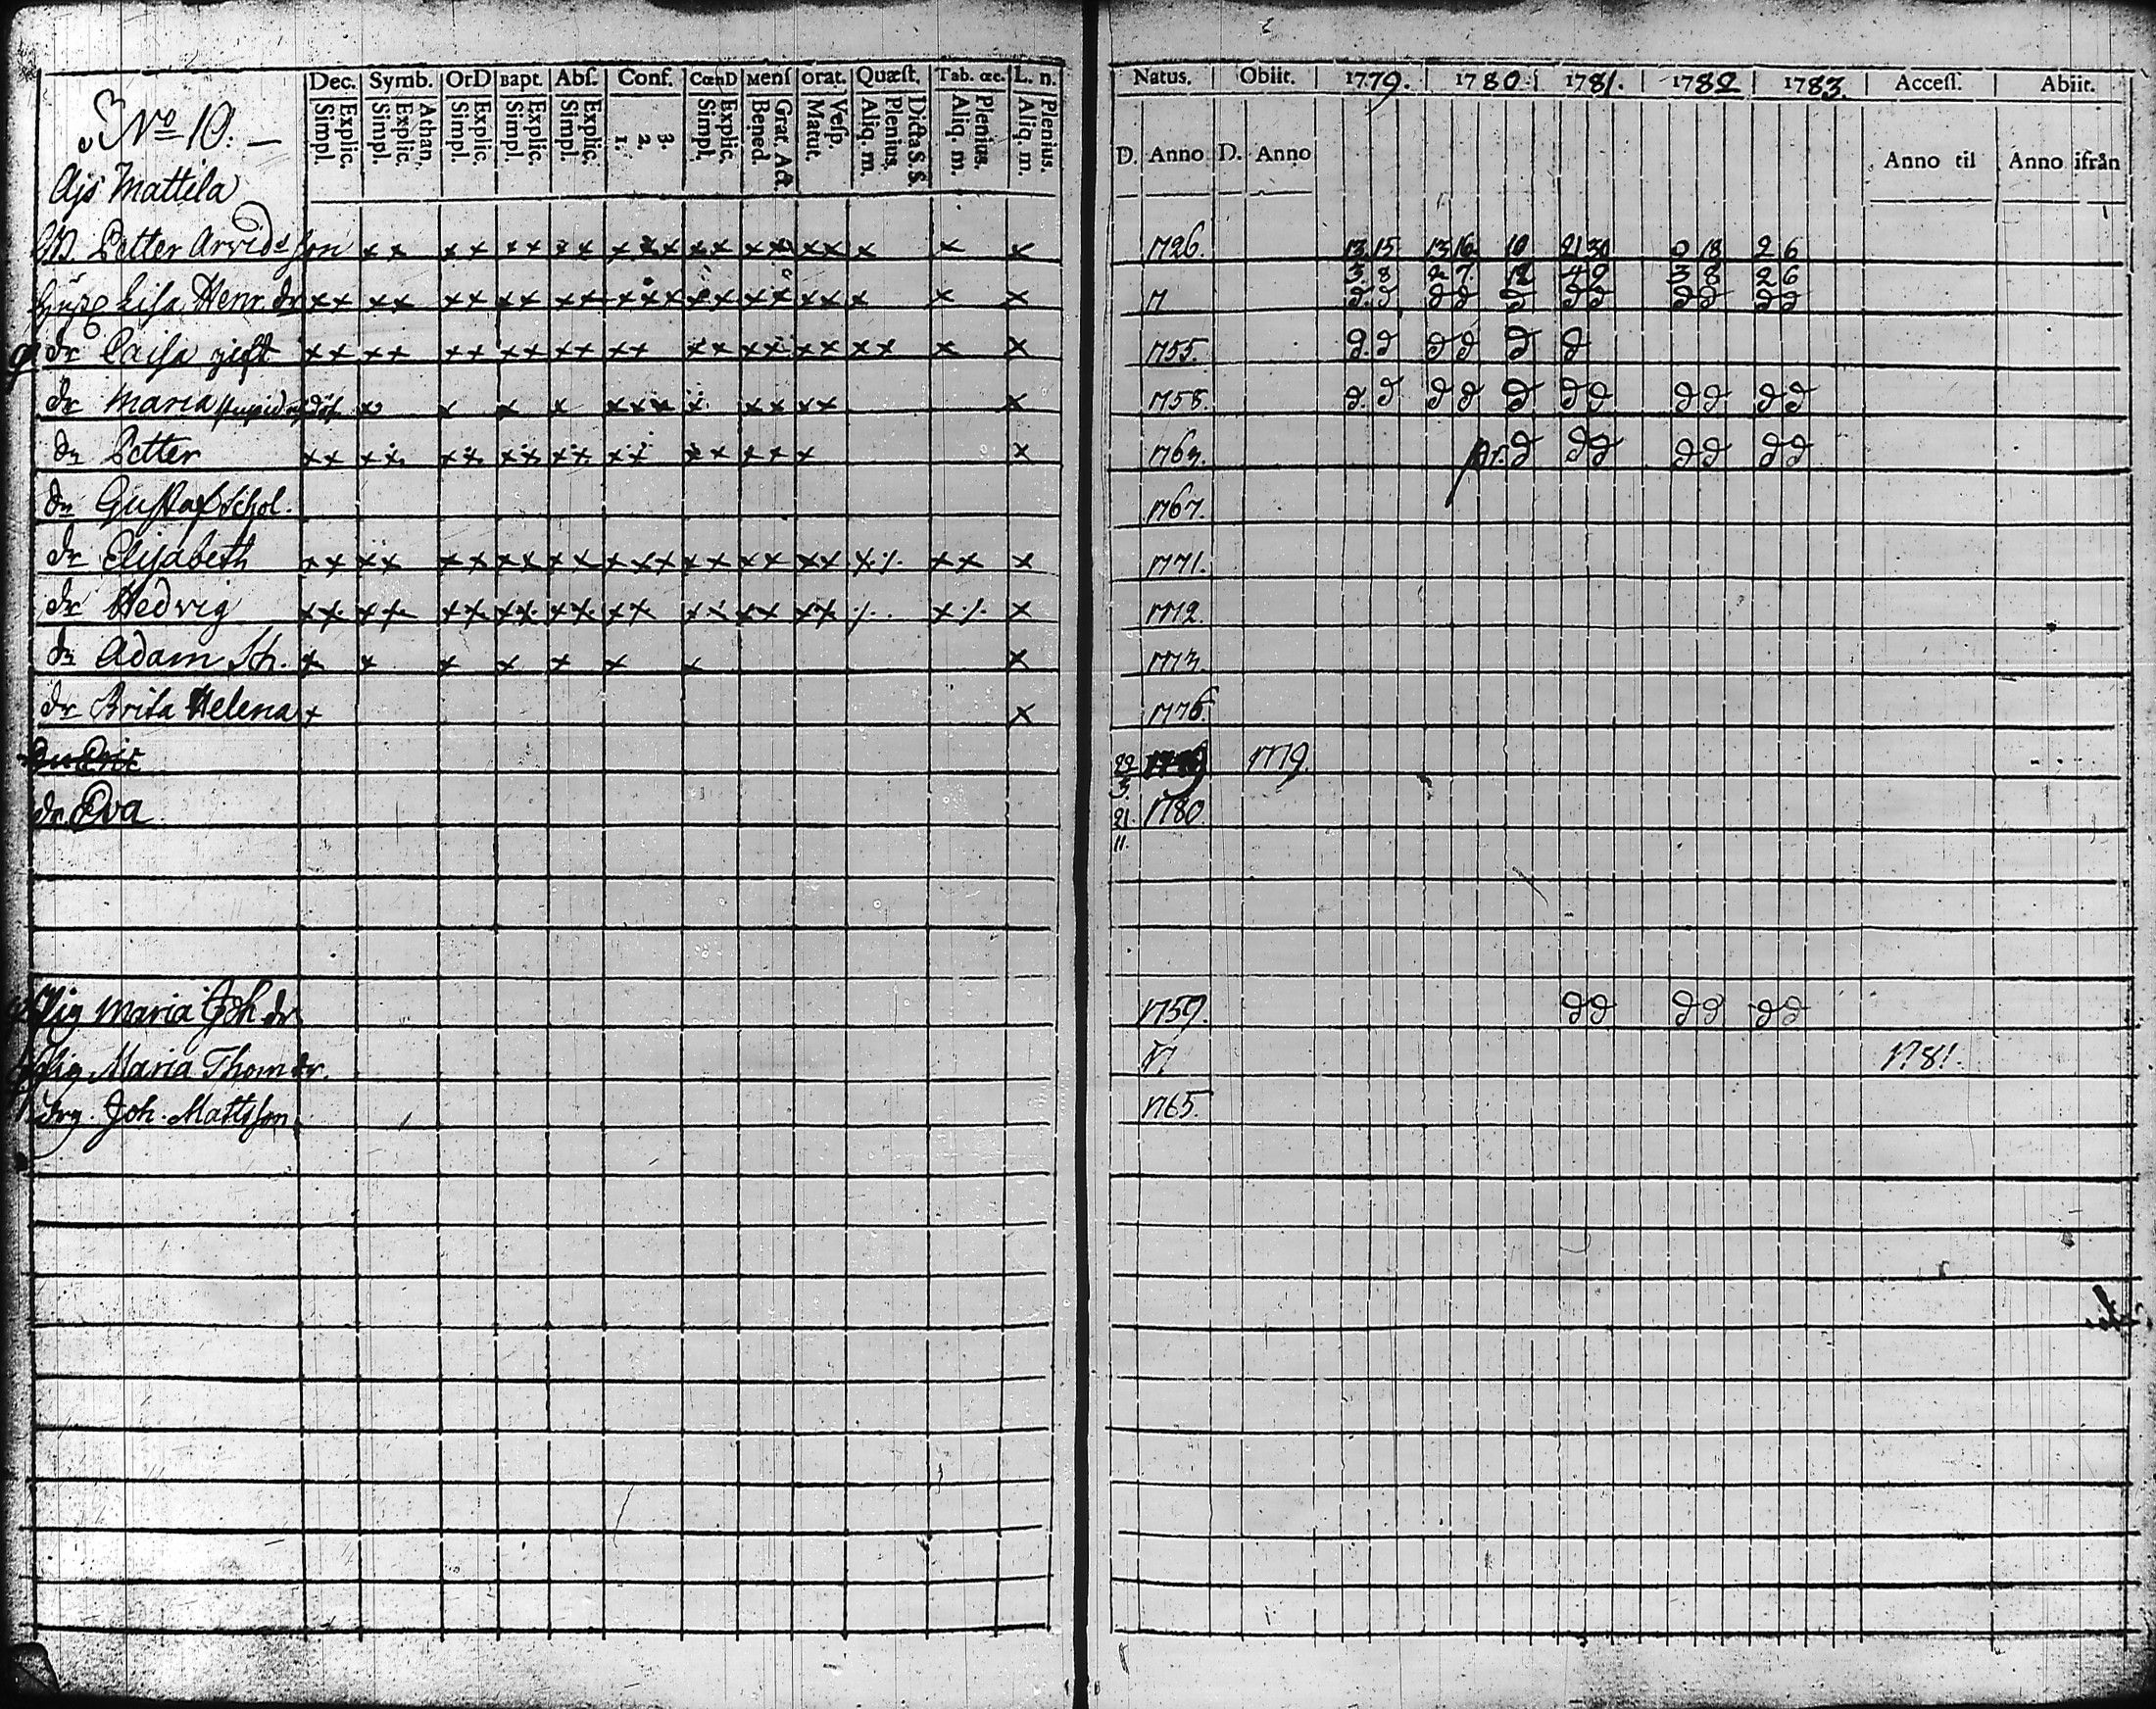 Dec. Symb. OrD Bapt. Abſ. Conf. CœnD Menſ orat. Quæſt. Tab. œc. L. n.
Explic. Simpl.
Athan. Explic. Simpl.
Explic. Simpl.
Explic. Simpl.
Explic. Simpl.
3. 2. 1.
Explic. Simpl.
Grat. Act. Bened.
Veſp. Matut.
Dicta S. S. Plenius. Aliq. m.
Plenius. Aliq. m.
Plenius. Aliq. m.
No 10.
Ajs Mattila
Petter Arvidsson x x x x x x x x x x x x x x x x x x x
Lisa Henr. dr x x x x x x x x x x x x x x x x x x x x x x
dr Caisa gift x x x x x x x x x x x x x x x x x x x x x x
dr Maria x x x x x x x x x x x x x
dn Petter x x x x x x x x x x x x x x x x x x
dn Gustaf Schol.
dr Elisabeth x x x x x x x x x x x x x x x x x x x x ·/. x x x
dr Hedvig x x x x x x x x x x x x x x x x x x ·/. x ·/. x
dn Adam x x x x x x x x
dr Brita Helena x x
dn Eric
dr. Eva
Pig Maria Joh dr
Pig Maria Thom dr.
Drg. Joh. Mattsson
Natus. Obiit. 1779. 1780. 1781. 1782 1783. Acceſſ. Abiit.
D. Anno D. Anno Anno til Anno ifrån
1726. 13 15 13 16 10 21 30 18 2 6
3 8 2 7 12 4 9 3 8 2 6
1755.
1758.
1763. pr.
1767.
1771.
1772.
1773.
1776.
22 1779.
3.
21. 1780.
11.
1759.
1781.
1765.